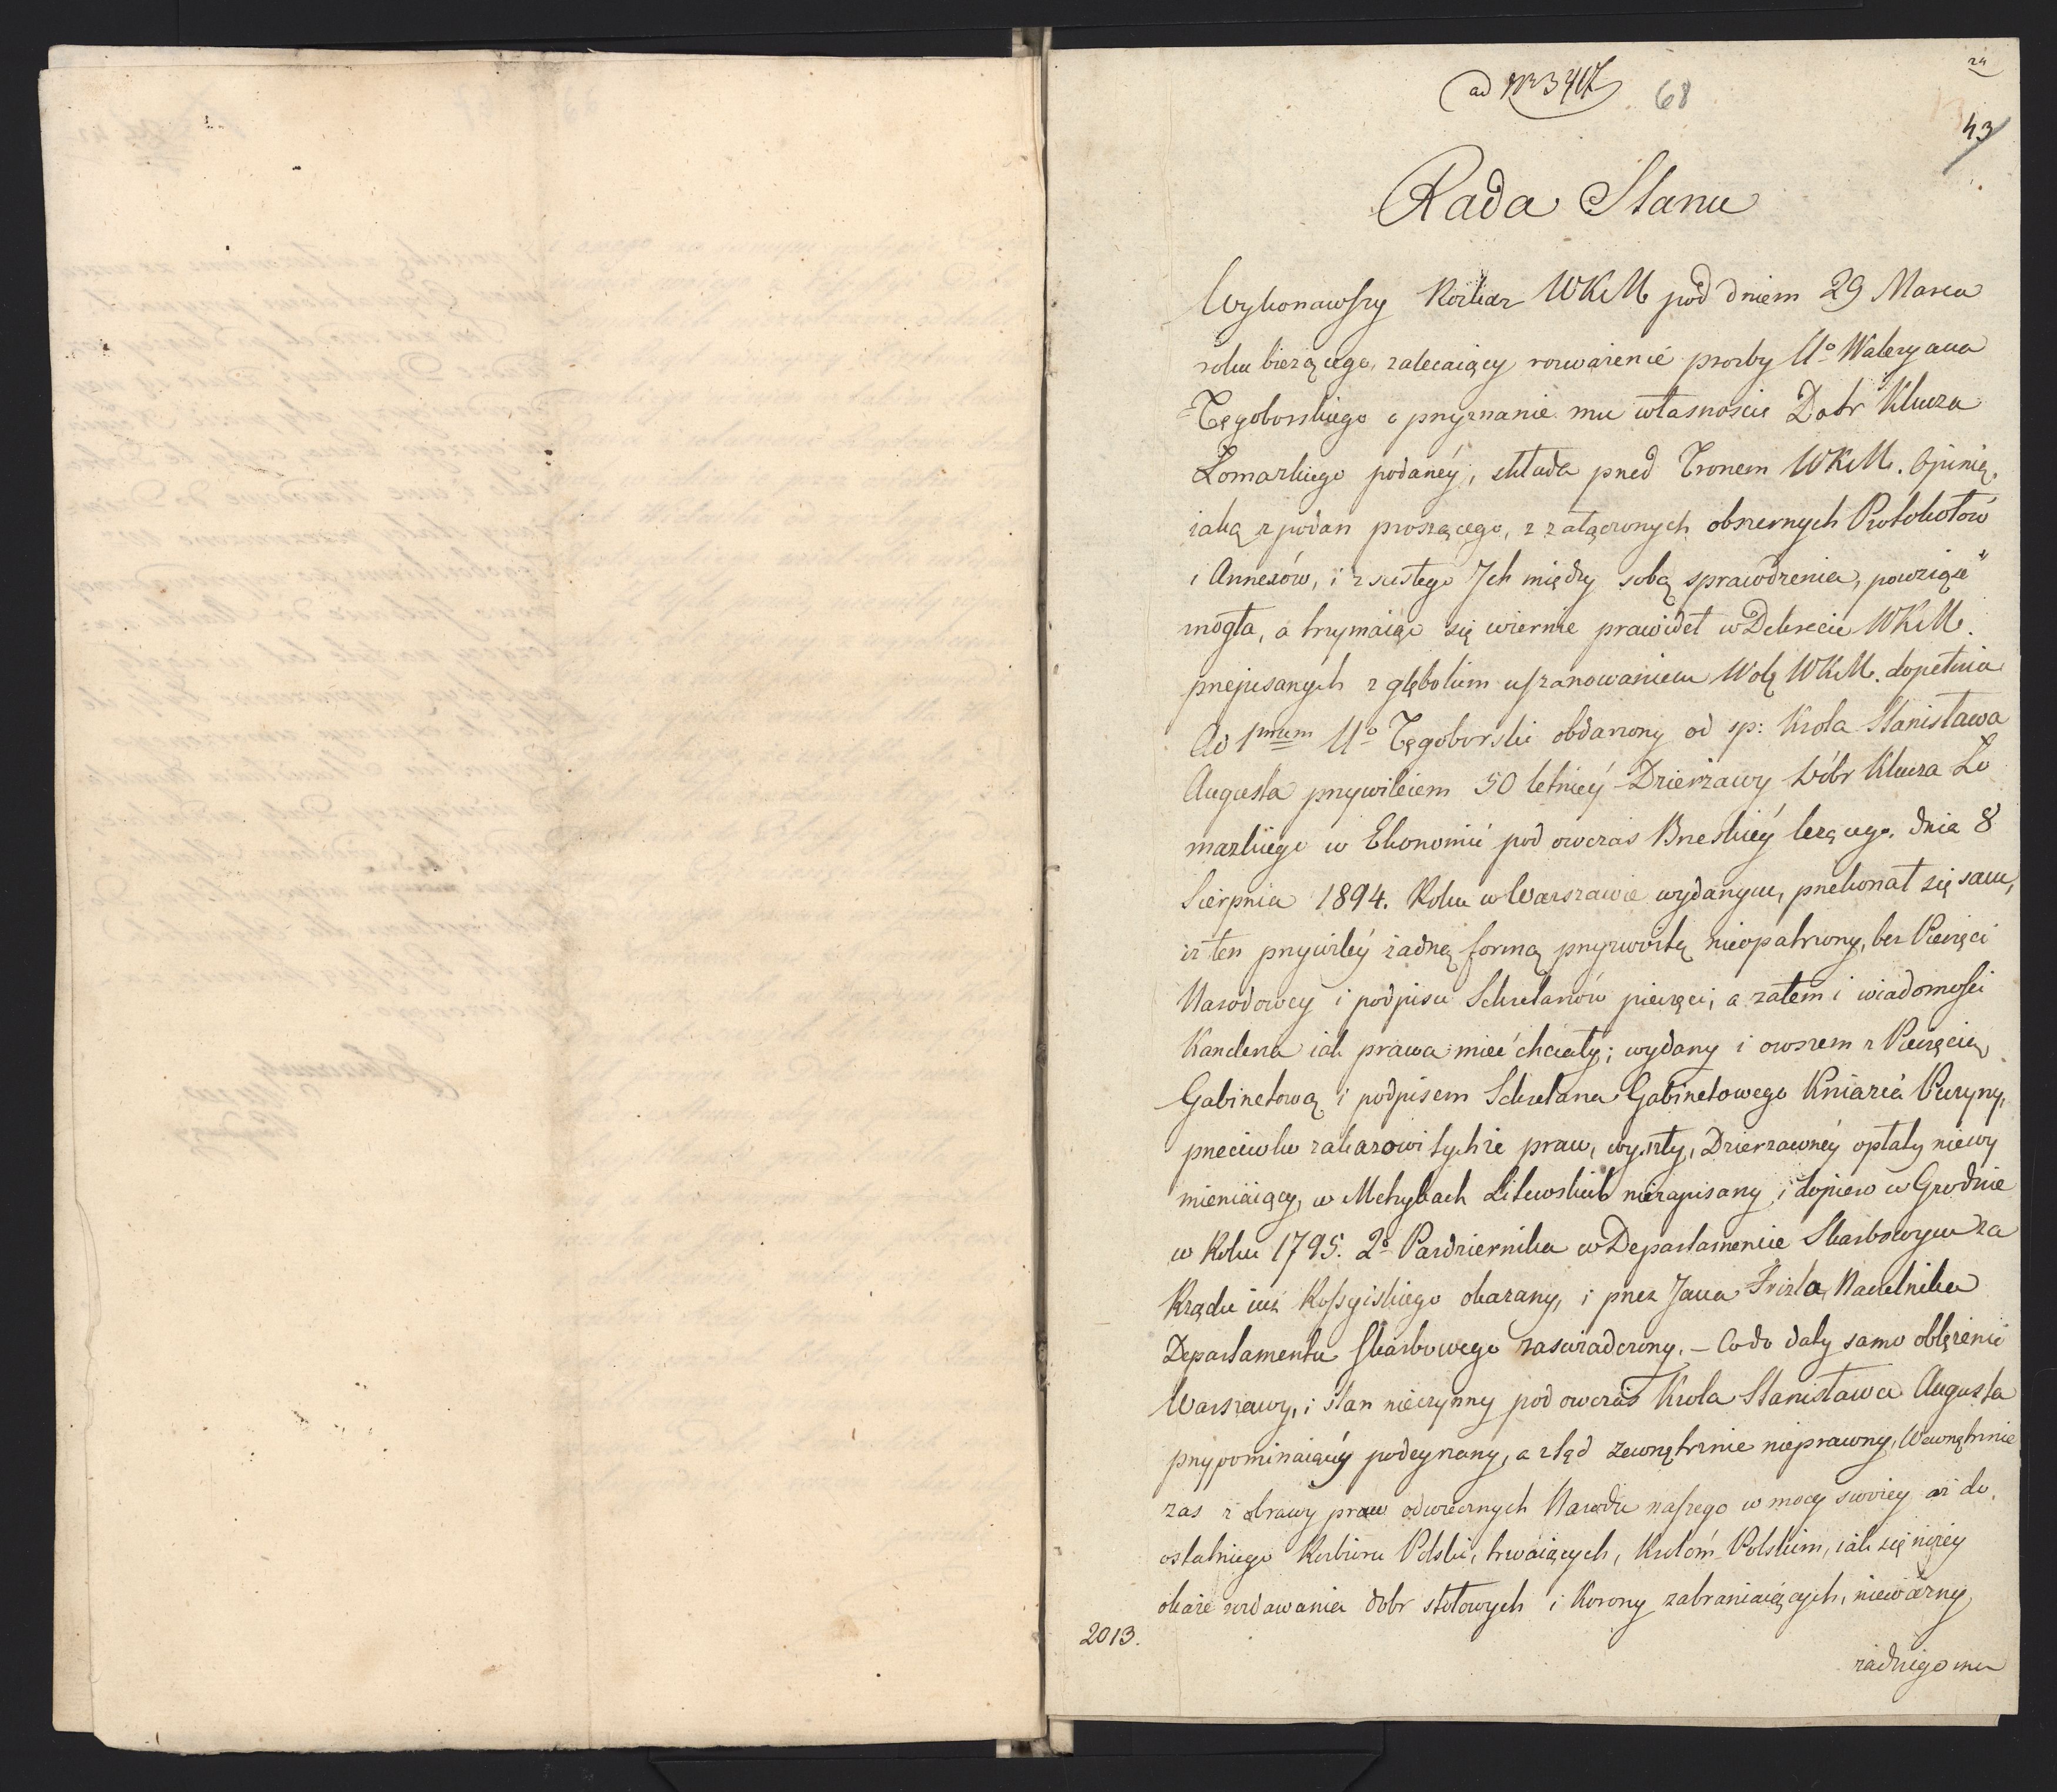 ad Nr 3417
68
24
43
Rada Stanu
Wykonawszy Rozkaz WKM pod dniem 29 Marca
roku bieżącego, zalecaiący rozważenie prozby Uo Waleryana
Tęgoborskiego o przyznanie mu własności Dobr Klucza
Łomazkiego podaney, składa przed Tronem WKM. Opinię,
iaką z podan proszącego, z załączonych obszernych Protokołów
i Annexów, i z scisłego Ich między sobą sprawdzenia, powziąć
mogła, a trzymaiąc się wiernie prawideł w Dekrecie WKM.
przepisanych z głębokim uszanowaniem Wolę WKM. dopełnia
Ad 1mum Uo Tęgoborski obdarzony od sp: Krola Stanisława
Augusta przywileiem 50 letniéy Dzierżawy Dóbr Klucza Ło
mazkiego w Ekonomii pod owczas Brzeskiéy leżącego, dnia 8
Sierpnia 1894. Roku w Warszawie wydanym, przekonał się sam,
iż ten przywiléy żadną formą przyzwoitą nieopatrzony, bez Pieczęci
Narodowey i podpisu Sekretarzów pieczęci, a zatem i wiadomości
Kanclerza iak prawa mieć chciały; wydany i owszem z Pieczęcią
Gabinetową i podpisem Sekretarza Gabinetowego Kniazia Puzyny,
przeciwko zakazowi tychże praw, wyszły, Dzierzawnéy opłaty niewy
mieniaiący, w Metrykach Litewskich niezapisany, i dopiero w Grodnie
w Roku 1795. 2o Pazdziernika w Departamencie Skarbowym za
Rządu iuż Rossyiskiego okazany, i przez Jana Frizla Naczelnika
Departamentu Skarbowego zaswiadczony. – Co do daty samo oblężenie
Warszawy, i stan nieczynny pod owczas Krola Stanisława Augusta
przypominaiący podeyrzany, a ztąd zewnątrznie nieprawny, Wewnątrznie
zas z obrazy praw odwiecznych Narodu naszego w mocy swoiey aż do
ostatniego Rozbioru Polski, trwaiących, Krolóm Polskim, iak się niżéy
okaże rozdawania dobr stołowych i Korony zabraniaiących, nieważny,
2013.
żadnego mu